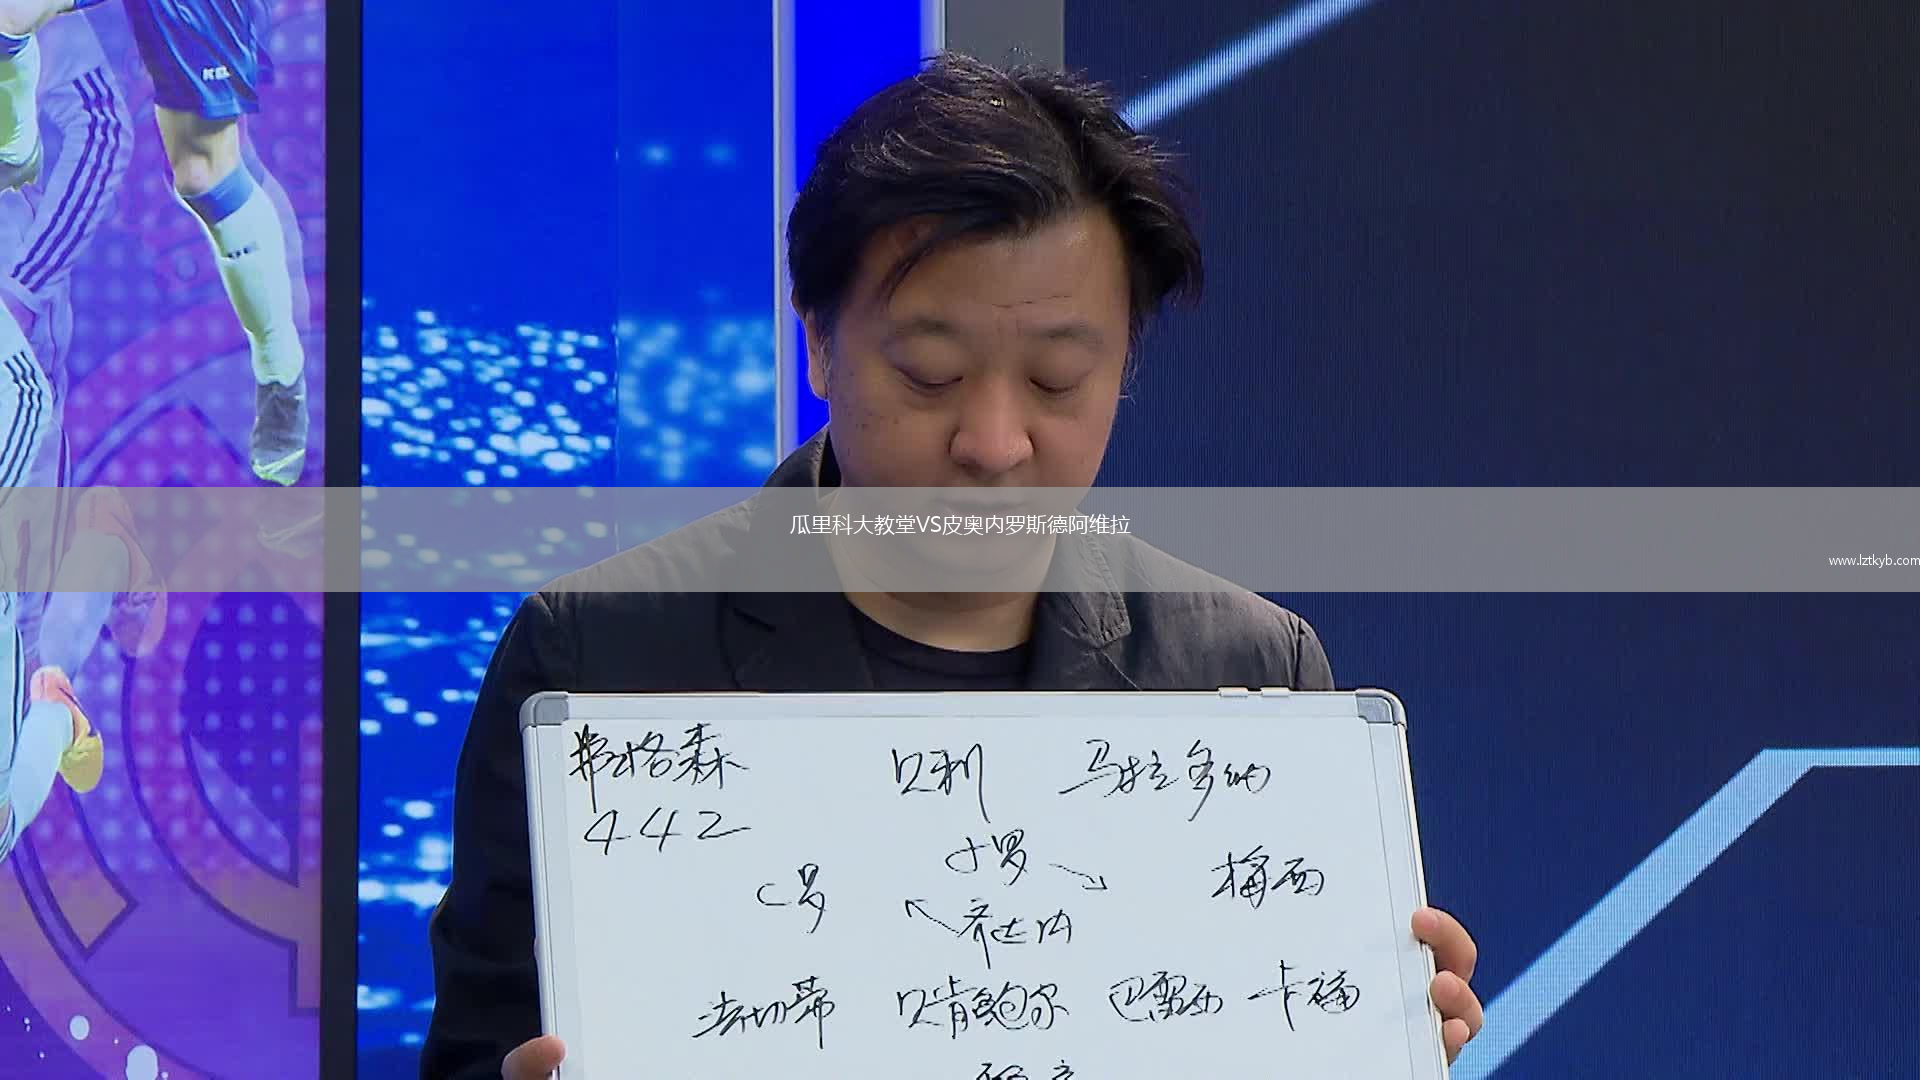 KEL
瓜里科大教堂VS皮奥内罗斯德阿维拉
www.lztkyb.com
弗格森 贝利 马拉多纳
442
C罗 小罗 梅西
齐达内
法切蒂 贝肯鲍尔 巴雷西 卡福